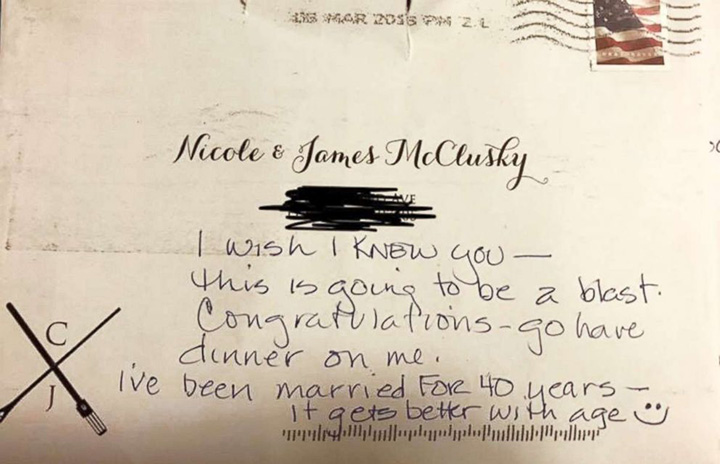 MAR 2018 PM 2 L
Nicole & James McClusky
AVE
I wish I KNEW you —
this is going to be a blast.
Congratulations - go have
dinner on me.
I've been married FOR 40 years —
It gets better with age
C
J